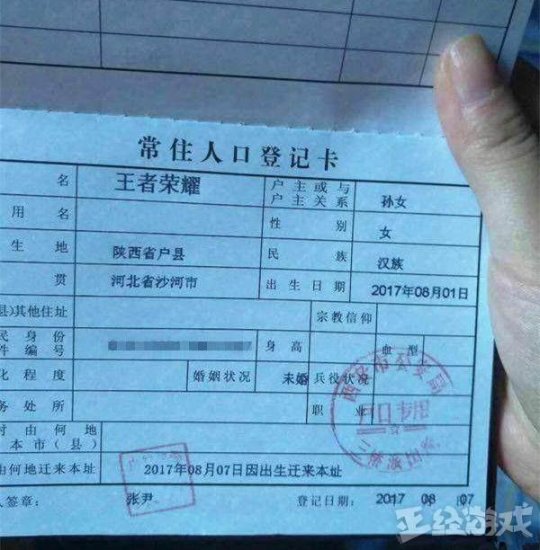 常住人口登记卡
名 王者荣耀 户主或与户主关系 孙女
用名 性别 女
生地 陕西省户县 民族 汉族
贯 河北省沙河市 出生日期 2017年08月01日
县)其他住址 宗教信仰
民身份
件编号 身高 血型
化程度 婚姻状况 未婚 兵役状况
务处所 职业
时由何地
本市(县)
由何地迁来本址 2017年08月07日因出生迁来本址
人签章: 张尹 登记日期: 2017 08 07
户口专用
正经游戏